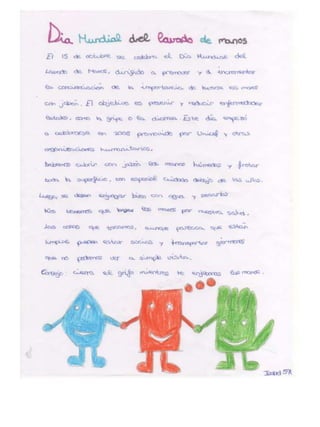 Día Mundial del lavado de manos
El 15 de octubre se celebra el Día Mundial del
Lavado de Manos, dirigido a promover y a incrementar
la concienciación de la importancia de lavarse las manos
con jabón. El objetivo es prevenir y reducir enfermedades
fatales, como la gripe o la diarrea. Este día empezó
a celebrarse en 2008 promovido por Unicef y otras
organizaciones humanitarias.
Debemos cubrir con jabón las manos húmedas y frotar
toda la superficie, con especial cuidado debajo de las uñas.
Luego, se deben enjuagar bien con agua y secarlas
Nos tenemos que lavar las manos por nuestra salud,
las cosas que tocamos, aunque parezca que están
limpias pueden estar sucias y transportar gérmenes
que no podemos ver a simple vista.
Consejo: cierra el grifo mientras te enjabonas las manos.